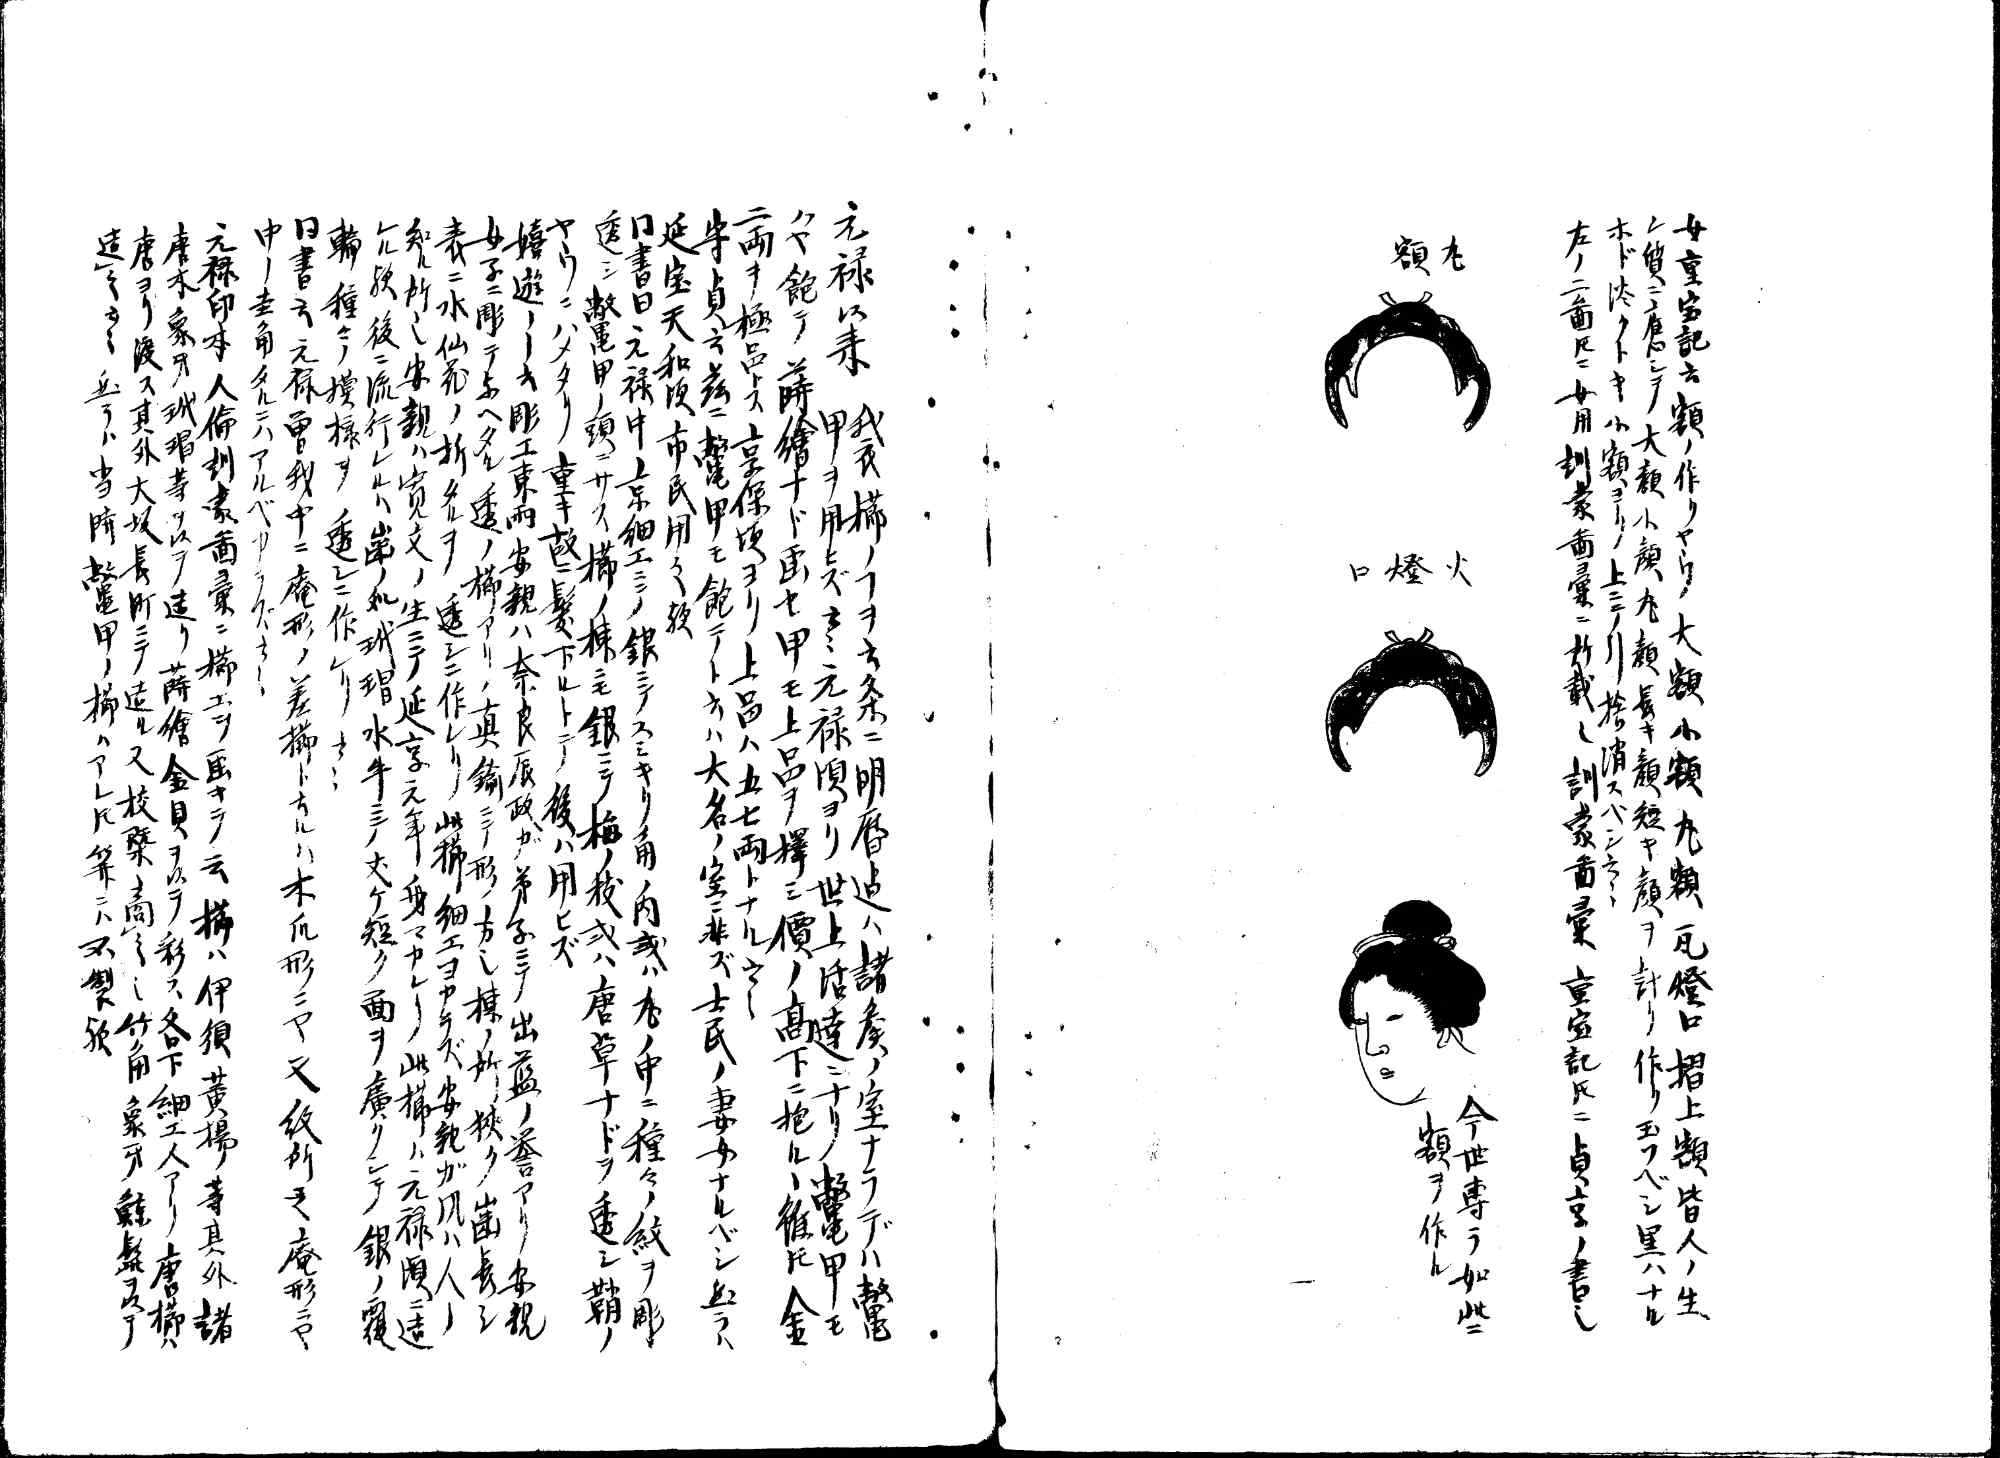 女重宝記云額ノ作リヤウハ大額小額丸額瓦燈口摺上額皆人ノ生
レ質ニ應シテ大顔小顔丸顔長キ顔短キ顔ヲ計リ作リ玉フベシ黒ハナル
ホド淡クトキ小額ヨリノ上ニテ引捨消スベシ云々
左ノ二圖トモニ女用訓蒙圖彙ニ所載也訓蒙圖彙重宝記トモニ貞享ノ書也
丸額
火燈口
今世専ラ如此ニ
額ヲ作ル
元禄以来 我衣櫛ノコヲ云条ニ明暦迠ハ諸矦ノ室ナラデハ鼈
甲ヲ用ヒズ云々元禄頃ヨリ世上活達ニナリ鼈甲モ
ハヤ飽テ蒔繪ナド画セ甲モ上品ヲ擇ミ價ノ髙下ニ抱ルヿ雖トモ金
二両ヲ極品トス享保頃ヨリ上品ハ五七両トナル云々
守貞云茲ニ鼈甲モ飽テト云ハ大名ノ室ニ非ズ士民ノ妻女ナルベシ然ラハ
延宝天和頃市民用之歟
同書曰元禄中上京細工ニノ銀ニテスミキリ角ノ内或ハ丸ノ中ニ種々ノ紋ヲ彫
透シ鼈甲ノ頭ニサス櫛ノ棟ニモ銀ニテ梅ノ枝或ハ唐草ナドヲ透シ鞘ノ
ヤウニハメタリ重キ故ニ髪下ルトテ後ハ用ヒズ
嬉遊ーー云彫工東雨安親ハ奈良辰政ガ弟子ニテ出藍ノ誉アリ安親
女子ニ彫テ与ヘタル透ノ櫛アリ真鍮ニテ形ノ方也棟ノ所狭ク歯長シ
表ニ水仙花ノ折タルヲ透シニ作レリ此櫛細工ヨカラズ安親ガ風ハ人ノ
知ル所也安親ハ寛文ノ生ニテ延享元年身マカレリ此櫛ハ元禄頃ニ造
ケル歟後ニ流行レルハ歯ノ処玳瑁水牛ニノ丈ケ短ク面ヲ廣クシテ銀ノ覆
輪種々ノ模様ヲ透シニ作レリ云々
同書云元禄曽我中ニ庵形ノ差櫛ト云ルハ木瓜形ニヤ又紋所ノ庵形ニヤ
中ノ圭角タルニハアルベカラズ云々
元禄印本人倫訓蒙圖彙ニ櫛工ヲ画キテ云櫛ハ伊須黄楊等其外諸
唐木象牙玳瑁等ヲ以テ造リ蒔繪金貝ヲ以テ彩ス各下細工人アリ唐櫛ハ
唐ヨリ渡ス其外大坂長町ニテ造ル又挍櫐ノ商之也竹角象牙鯨髭ヲ以テ
造之云々然ラハ当時鼈甲ノ櫛ハアレトモ笄ニハ不製歟